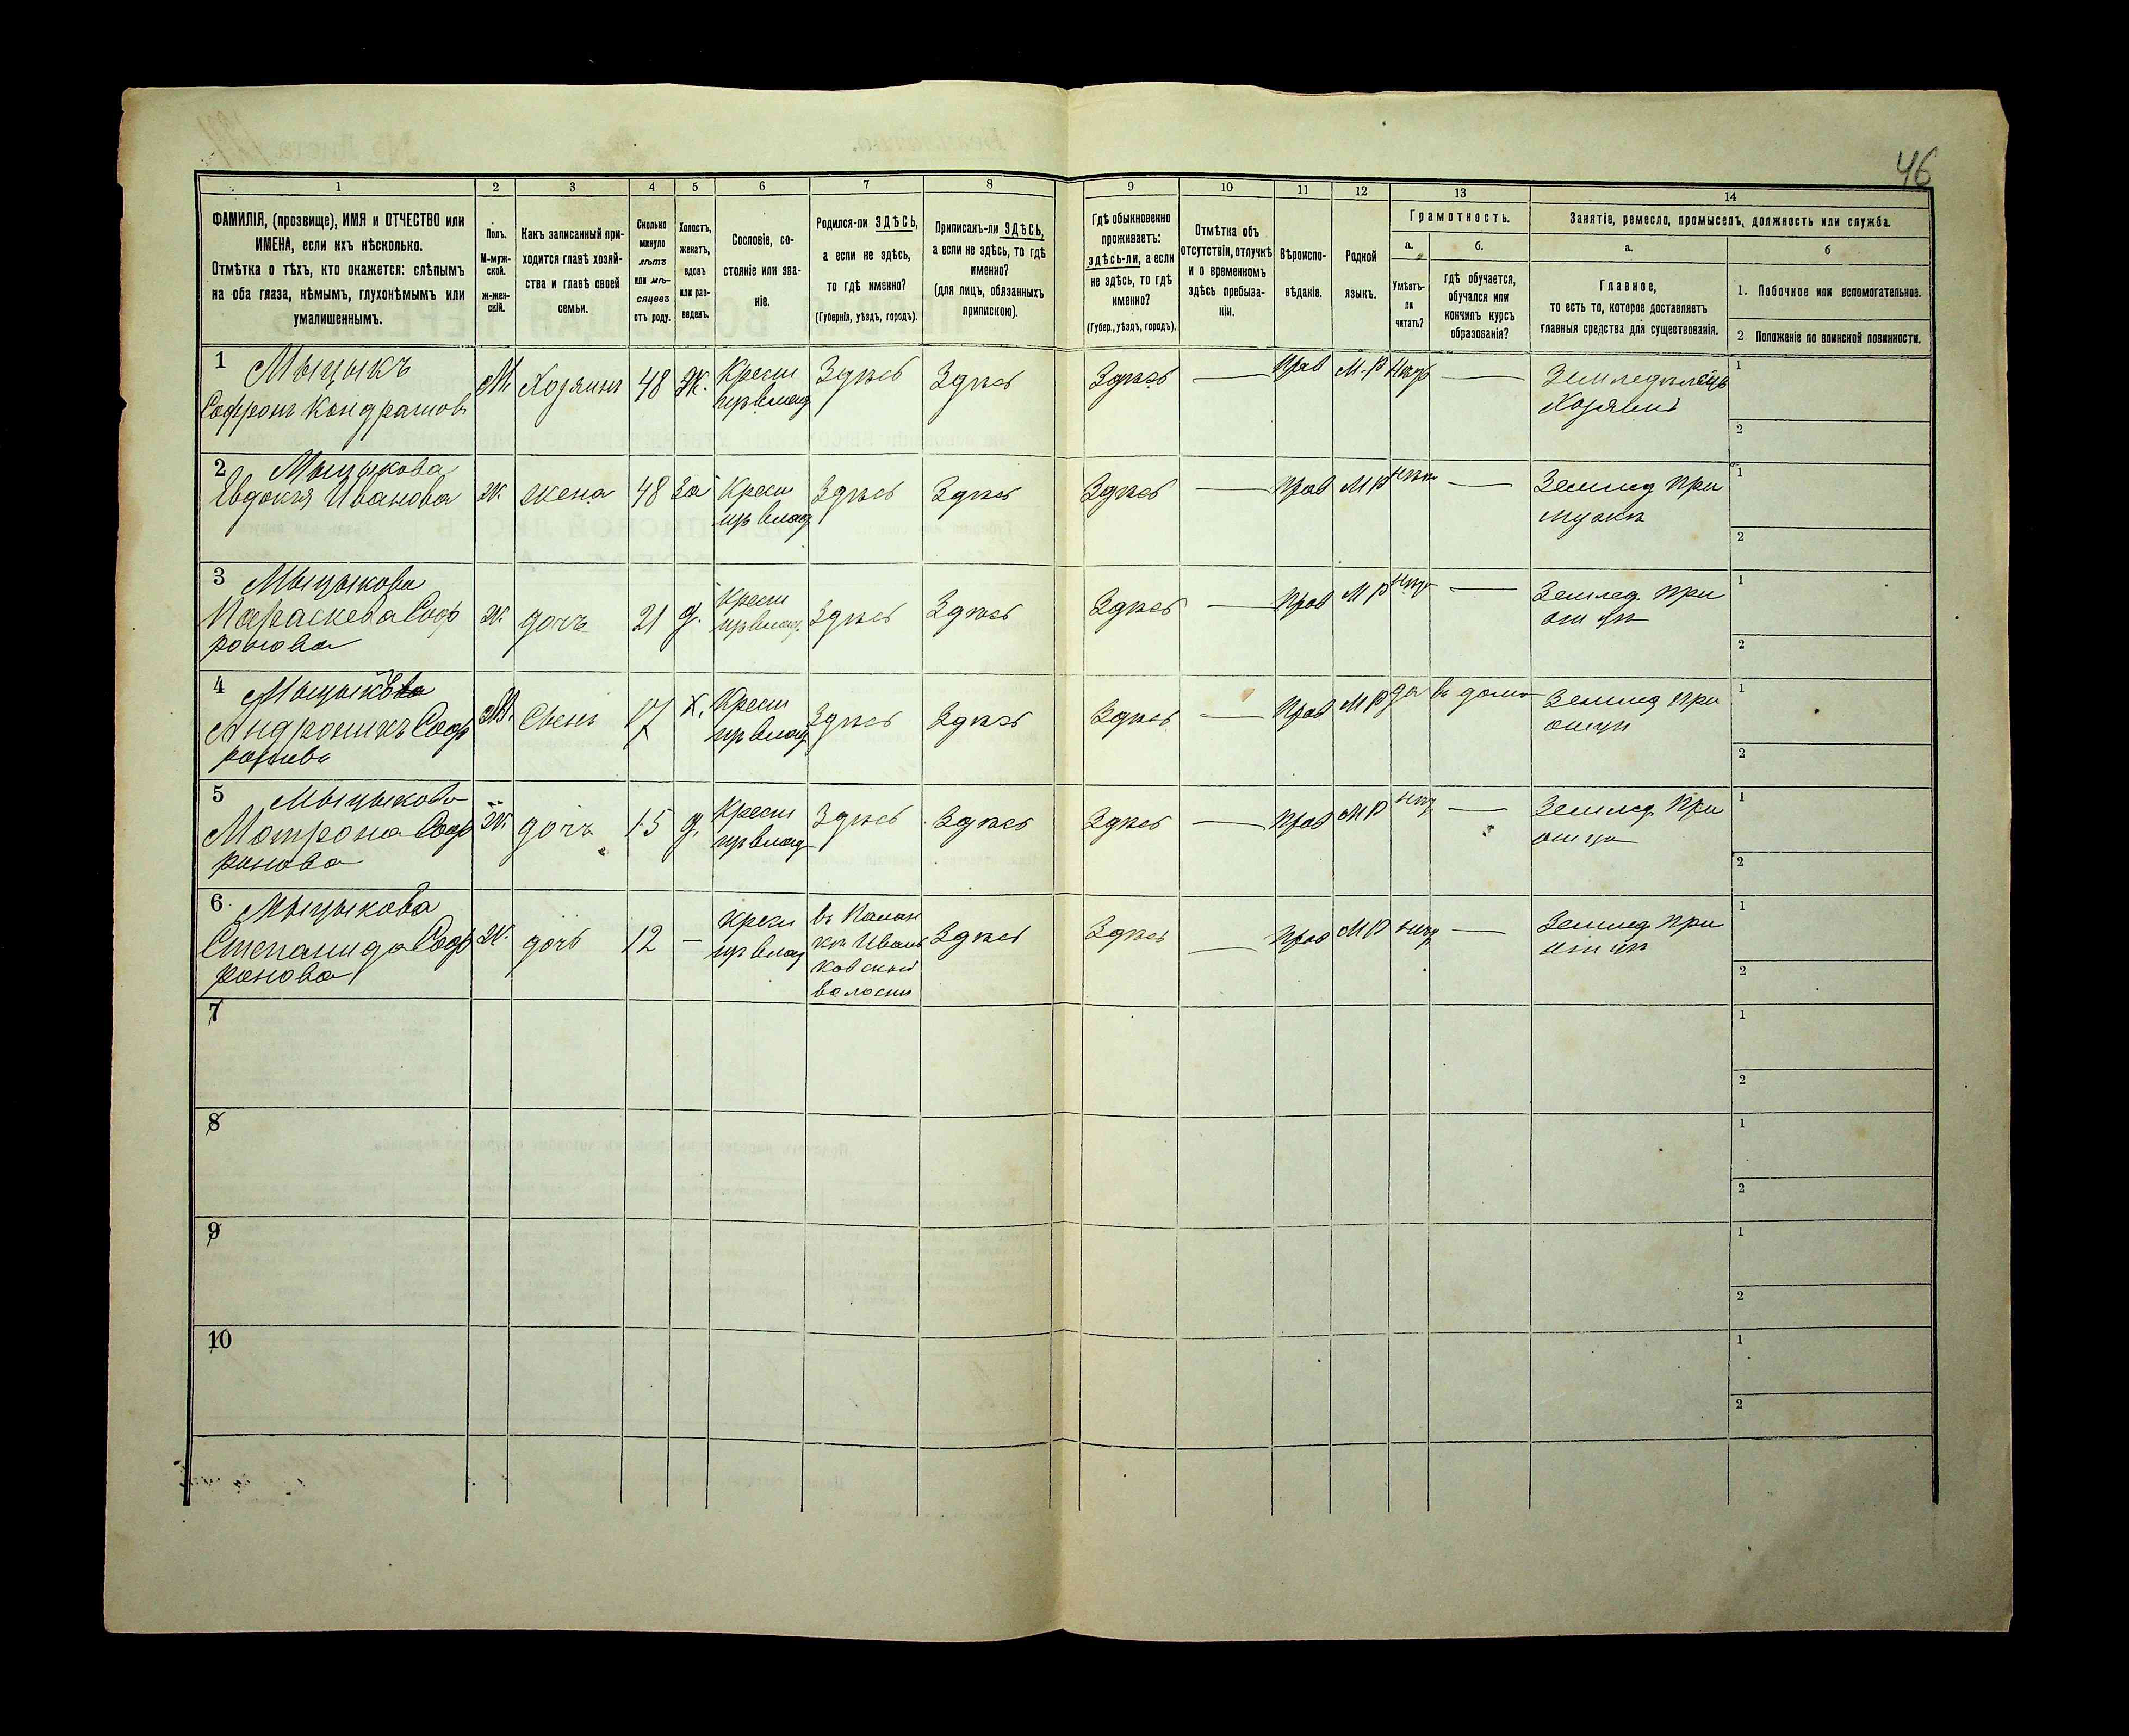 46
1 2 3 4 5 6 7 8 9 10 11 12 13 14
ФАМИЛІЯ, (прозвище), ИМЯ и ОТЧЕСТВО или
ИМЕНА, если ихъ нѣсколько.
Отмѣтка о тѣхъ, кто окажется: слѣпымъ
на оба глаза, нѣмымъ, глухонѣмымъ или
умалишеннымъ.
Полъ.
М-муж-
ской.
ж-жен-
скій.
Какъ записанный при-
ходится главѣ хозяй-
ства и главѣ своей
семьи.
Сколько
минуло
лѣтъ
или мѣ-
сяцевъ
отъ роду.
Холостъ,
женатъ,
вдовъ
или раз-
веденъ.
Сословіе, со-
стояніе или зва-
ніе.
Родился-ли ЗДѢСЬ,
а если не здѣсь,
то гдѣ именно?
(Губернія, уѣздъ, городъ).
Приписанъ-ли ЗДѢСЬ,
а если не здѣсь, то гдѣ
именно?
(для лицъ, обязанныхъ
припискою).
Гдѣ обыкновенно
проживаетъ:
здѣсь-ли, а если
не здѣсь, то гдѣ
именно?
(Губер., уѣздъ, городъ).
Отмѣтка объ
отсутствіи, отлучкѣ
и о временномъ
здѣсь пребыва-
ніи.
Вѣроиспо-
вѣданіе.
Родной
языкъ.
Грамотность.
а.
Умѣетъ-
ли
читать?
б.
гдѣ обучается,
обучался или
кончилъ курсъ
образованія?
Занятіе, ремесло, промыселъ, должность или служба.
а.
Главное,
то есть то, которое доставляетъ
главныя средства для существованія.
б
1. Побочное или вспомогательное.
2 Положеніе по воинской повинности.
1 Мыцыкъ
Софронъ Кондратовъ
М. Хозяинъ 48 Ж. Крест
изъ влад
Здѣсь Здѣсь Здѣсь — Прав М-Р — Земледѣлецъ
Хозяинъ
1
2
2 Мыцыкова
Евдокія Иванова
ж. жена 48 За Крест
изъ влад
Здѣсь Здѣсь Здѣсь — Прав МР — Землед при
мужѣ
1
2
3 Мыцыкова
Параскева Соф
ронова
ж. дочь 21 д. Крест
изъ влад.
Здѣсь Здѣсь Здѣсь — Прав МР — Землед. при
отцѣ
1
2
4
Андроникъ Соф
М. Сынъ 17 Х. Крест
изъ влад
Здѣсь Здѣсь Здѣсь — Прав МР да въ дома Землед при
отцѣ
1
2
5 Мыцыкова
Матрона Соф
ронова
ж. дочь 15 д. Крест
изъ влад
Здѣсь Здѣсь Здѣсь — Прав МР — Землед. при
отцѣ
1
2
6. Мыцыкова
Степанида Соф
ронова
ж. дочь 12 — Крест
изъ влад
въ
Иваньковской
волости
Здѣсь Здѣсь — Прав МР — Землед при
отцѣ
1
2
7
1
2
8
1
2
9
1
2
10
1
2